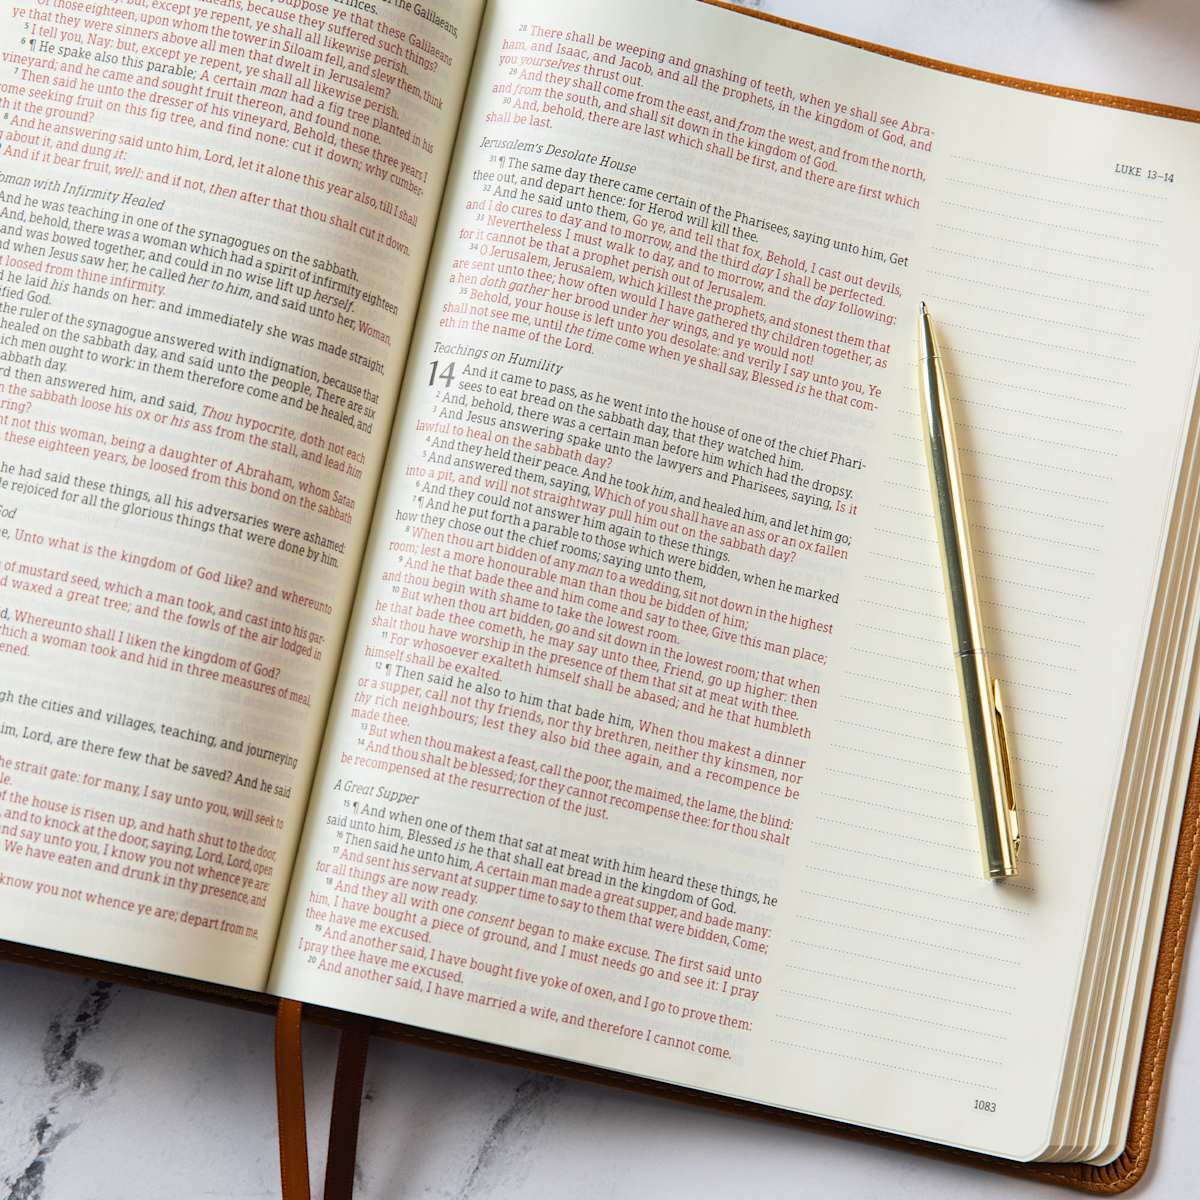 of the Galilaeans,
suppose ye that these Galilaeans
laeans, because they suffered such things?
Nay: but, except ye repent, ye shall all likewise perish.
Or those eighteen, upon whom the tower in Siloam fell, and slew them, think
ye that they were sinners above all men that dwelt in Jerusalem?
5 I tell you, Nay: but, except ye repent, ye shall all likewise perish.
6 ¶ He spake also this parable; A certain man had a fig tree planted in his
vineyard; and he came and sought fruit thereon, and found none.
7 Then said he unto the dresser of his vineyard, Behold, these three years I
come seeking fruit on this fig tree, and find none: cut it down; why cumber-
th it the ground?
8 And he answering said unto him, Lord, let it alone this year also, till I shall
about it, and dung it:
And if it bear fruit, well: and if not, then after that thou shalt cut it down.
oman with Infirmity Healed
And he was teaching in one of the synagogues on the sabbath.
And, behold, there was a woman which had a spirit of infirmity eighteen
and was bowed together, and could in no wise lift up herself.
nd when Jesus saw her, he called her to him, and said unto her, Woman,
t loosed from thine infirmity.
d he laid his hands on her: and immediately she was made straight,
ified God.
the ruler of the synagogue answered with indignation, because that
healed on the sabbath day, and said unto the people, There are six
ich men ought to work: in them therefore come and be healed, and
abbath day.
rd then answered him, and said, Thou hypocrite, doth not each
n the sabbath loose his ox or his ass from the stall, and lead him
ring?
ht not this woman, being a daughter of Abraham, whom Satan
these eighteen years, be loosed from this bond on the sabbath
he had said these things, all his adversaries were ashamed:
le rejoiced for all the glorious things that were done by him.
od
e, Unto what is the kingdom of God like? and whereunto
of mustard seed, which a man took, and cast into his gar-
d waxed a great tree; and the fowls of the air lodged in
d, Whereunto shall I liken the kingdom of God?
which a woman took and hid in three measures of meal,
ened.
gh the cities and villages, teaching, and journeying
im, Lord, are there few that be saved? And he said
he strait gate: for many, I say unto you, will seek to
le.
of the house is risen up, and hath shut to the door,
and to knock at the door, saying, Lord, Lord, open
nd say unto you, I know you not whence ye are:
We have eaten and drunk in thy presence, and
know you not whence ye are; depart from me,
LUKE 13–14
28 There shall be weeping and gnashing of teeth, when ye shall see Abra-
ham, and Isaac, and Jacob, and all the prophets, in the kingdom of God, and
you yourselves thrust out.
29 And they shall come from the east, and from the west, and from the north,
and from the south, and shall sit down in the kingdom of God.
30 And, behold, there are last which shall be first, and there are first which
shall be last.
Jerusalem's Desolate House
31 ¶ The same day there came certain of the Pharisees, saying unto him, Get
thee out, and depart hence: for Herod will kill thee.
32 And he said unto them, Go ye, and tell that fox, Behold, I cast out devils,
and I do cures to day and to morrow, and the third day I shall be perfected.
33 Nevertheless I must walk to day, and to morrow, and the day following:
for it cannot be that a prophet perish out of Jerusalem.
34 O Jerusalem, Jerusalem, which killest the prophets, and stonest them that
are sent unto thee; how often would I have gathered thy children together, as
a hen doth gather her brood under her wings, and ye would not!
35 Behold, your house is left unto you desolate: and verily I say unto you, Ye
shall not see me, until the time come when ye shall say, Blessed is he that com-
eth in the name of the Lord.
Teachings on Humility
14 And it came to pass, as he went into the house of one of the chief Phari-
sees to eat bread on the sabbath day, that they watched him.
2 And, behold, there was a certain man before him which had the dropsy.
3 And Jesus answering spake unto the lawyers and Pharisees, saying, Is it
lawful to heal on the sabbath day?
4 And they held their peace. And he took him, and healed him, and let him go;
5 And answered them, saying, Which of you shall have an ass or an ox fallen
into a pit, and will not straightway pull him out on the sabbath day?
6 And they could not answer him again to these things.
7 ¶ And he put forth a parable to those which were bidden, when he marked
how they chose out the chief rooms; saying unto them,
8 When thou art bidden of any man to a wedding, sit not down in the highest
room; lest a more honourable man than thou be bidden of him;
9 And he that bade thee and him come and say to thee, Give this man place;
and thou begin with shame to take the lowest room.
10 But when thou art bidden, go and sit down in the lowest room; that when
he that bade thee cometh, he may say unto thee, Friend, go up higher: then
shalt thou have worship in the presence of them that sit at meat with thee.
11 For whosoever exalteth himself shall be abased; and he that humbleth
himself shall be exalted.
12 ¶ Then said he also to him that bade him, When thou makest a dinner
or a supper, call not thy friends, nor thy brethren, neither thy kinsmen, nor
thy rich neighbours; lest they also bid thee again, and a recompence be
made thee.
13 But when thou makest a feast, call the poor, the maimed, the lame, the blind:
14 And thou shalt be blessed; for they cannot recompense thee: for thou shalt
be recompensed at the resurrection of the just.
A Great Supper
15 ¶ And when one of them that sat at meat with him heard these things, he
said unto him, Blessed is he that shall eat bread in the kingdom of God.
16 Then said he unto him, A certain man made a great supper, and bade many:
17 And sent his servant at supper time to say to them that were bidden, Come;
for all things are now ready.
18 And they all with one consent began to make excuse. The first said unto
him, I have bought a piece of ground, and I must needs go and see it: I pray
thee have me excused.
19 And another said, I have bought five yoke of oxen, and I go to prove them:
I pray thee have me excused.
20 And another said, I have married a wife, and therefore I cannot come.
1083